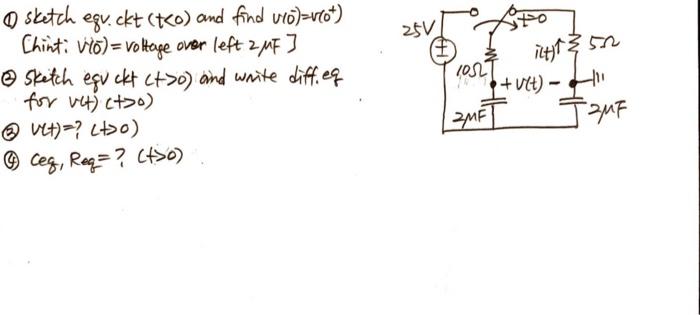 ① sketch eqv. ckt (t<0) and find v(0⁻)=v(0⁺)
[hint: v(0⁻)= voltage over left 2μF]
② sketch eqv ckt (t>0) and write diff. eq
for v(t) (t>0)
③ v(t)=? (t>0)
④ Ceq, Req=? (t>0)
25V
t=0
i(t)↑
5Ω
10Ω
+ v(t) -
2μF
2μF